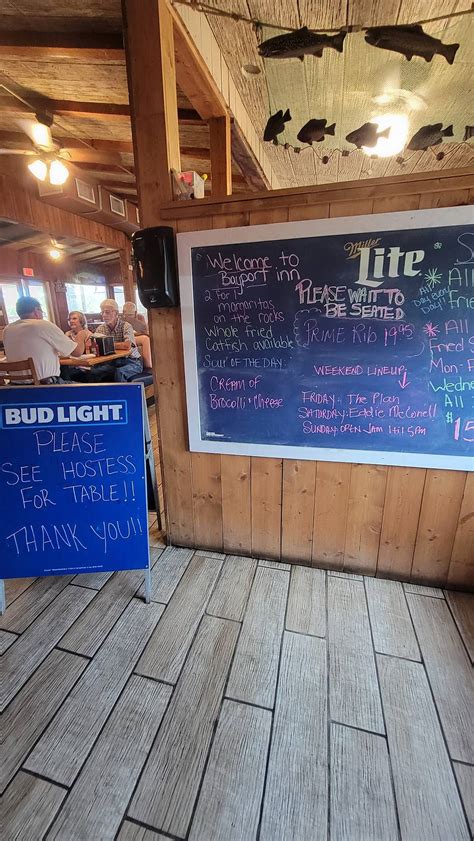 Welcome To
Bayport inn
2 For 1
margaritas
on the rocks
Whole Fried
Catfish available
Soup OF THE DAY:
Cream of
Brocolli & Cheese
Miller
Lite
PLEASE WAIT TO
BE SEATED
PRIME RIB 19.95
WEEKEND LINEUP
FRIDAY- The Plan
SATURDAY- Eddie McConell
SUNDAY- OPEN JAM 1til 5pm
All
Day
Mon-F
Wedne
All
$
BUD LIGHT
PLEASE
SEE HOSTESS
FOR TABLE!!
THANK YOU!!